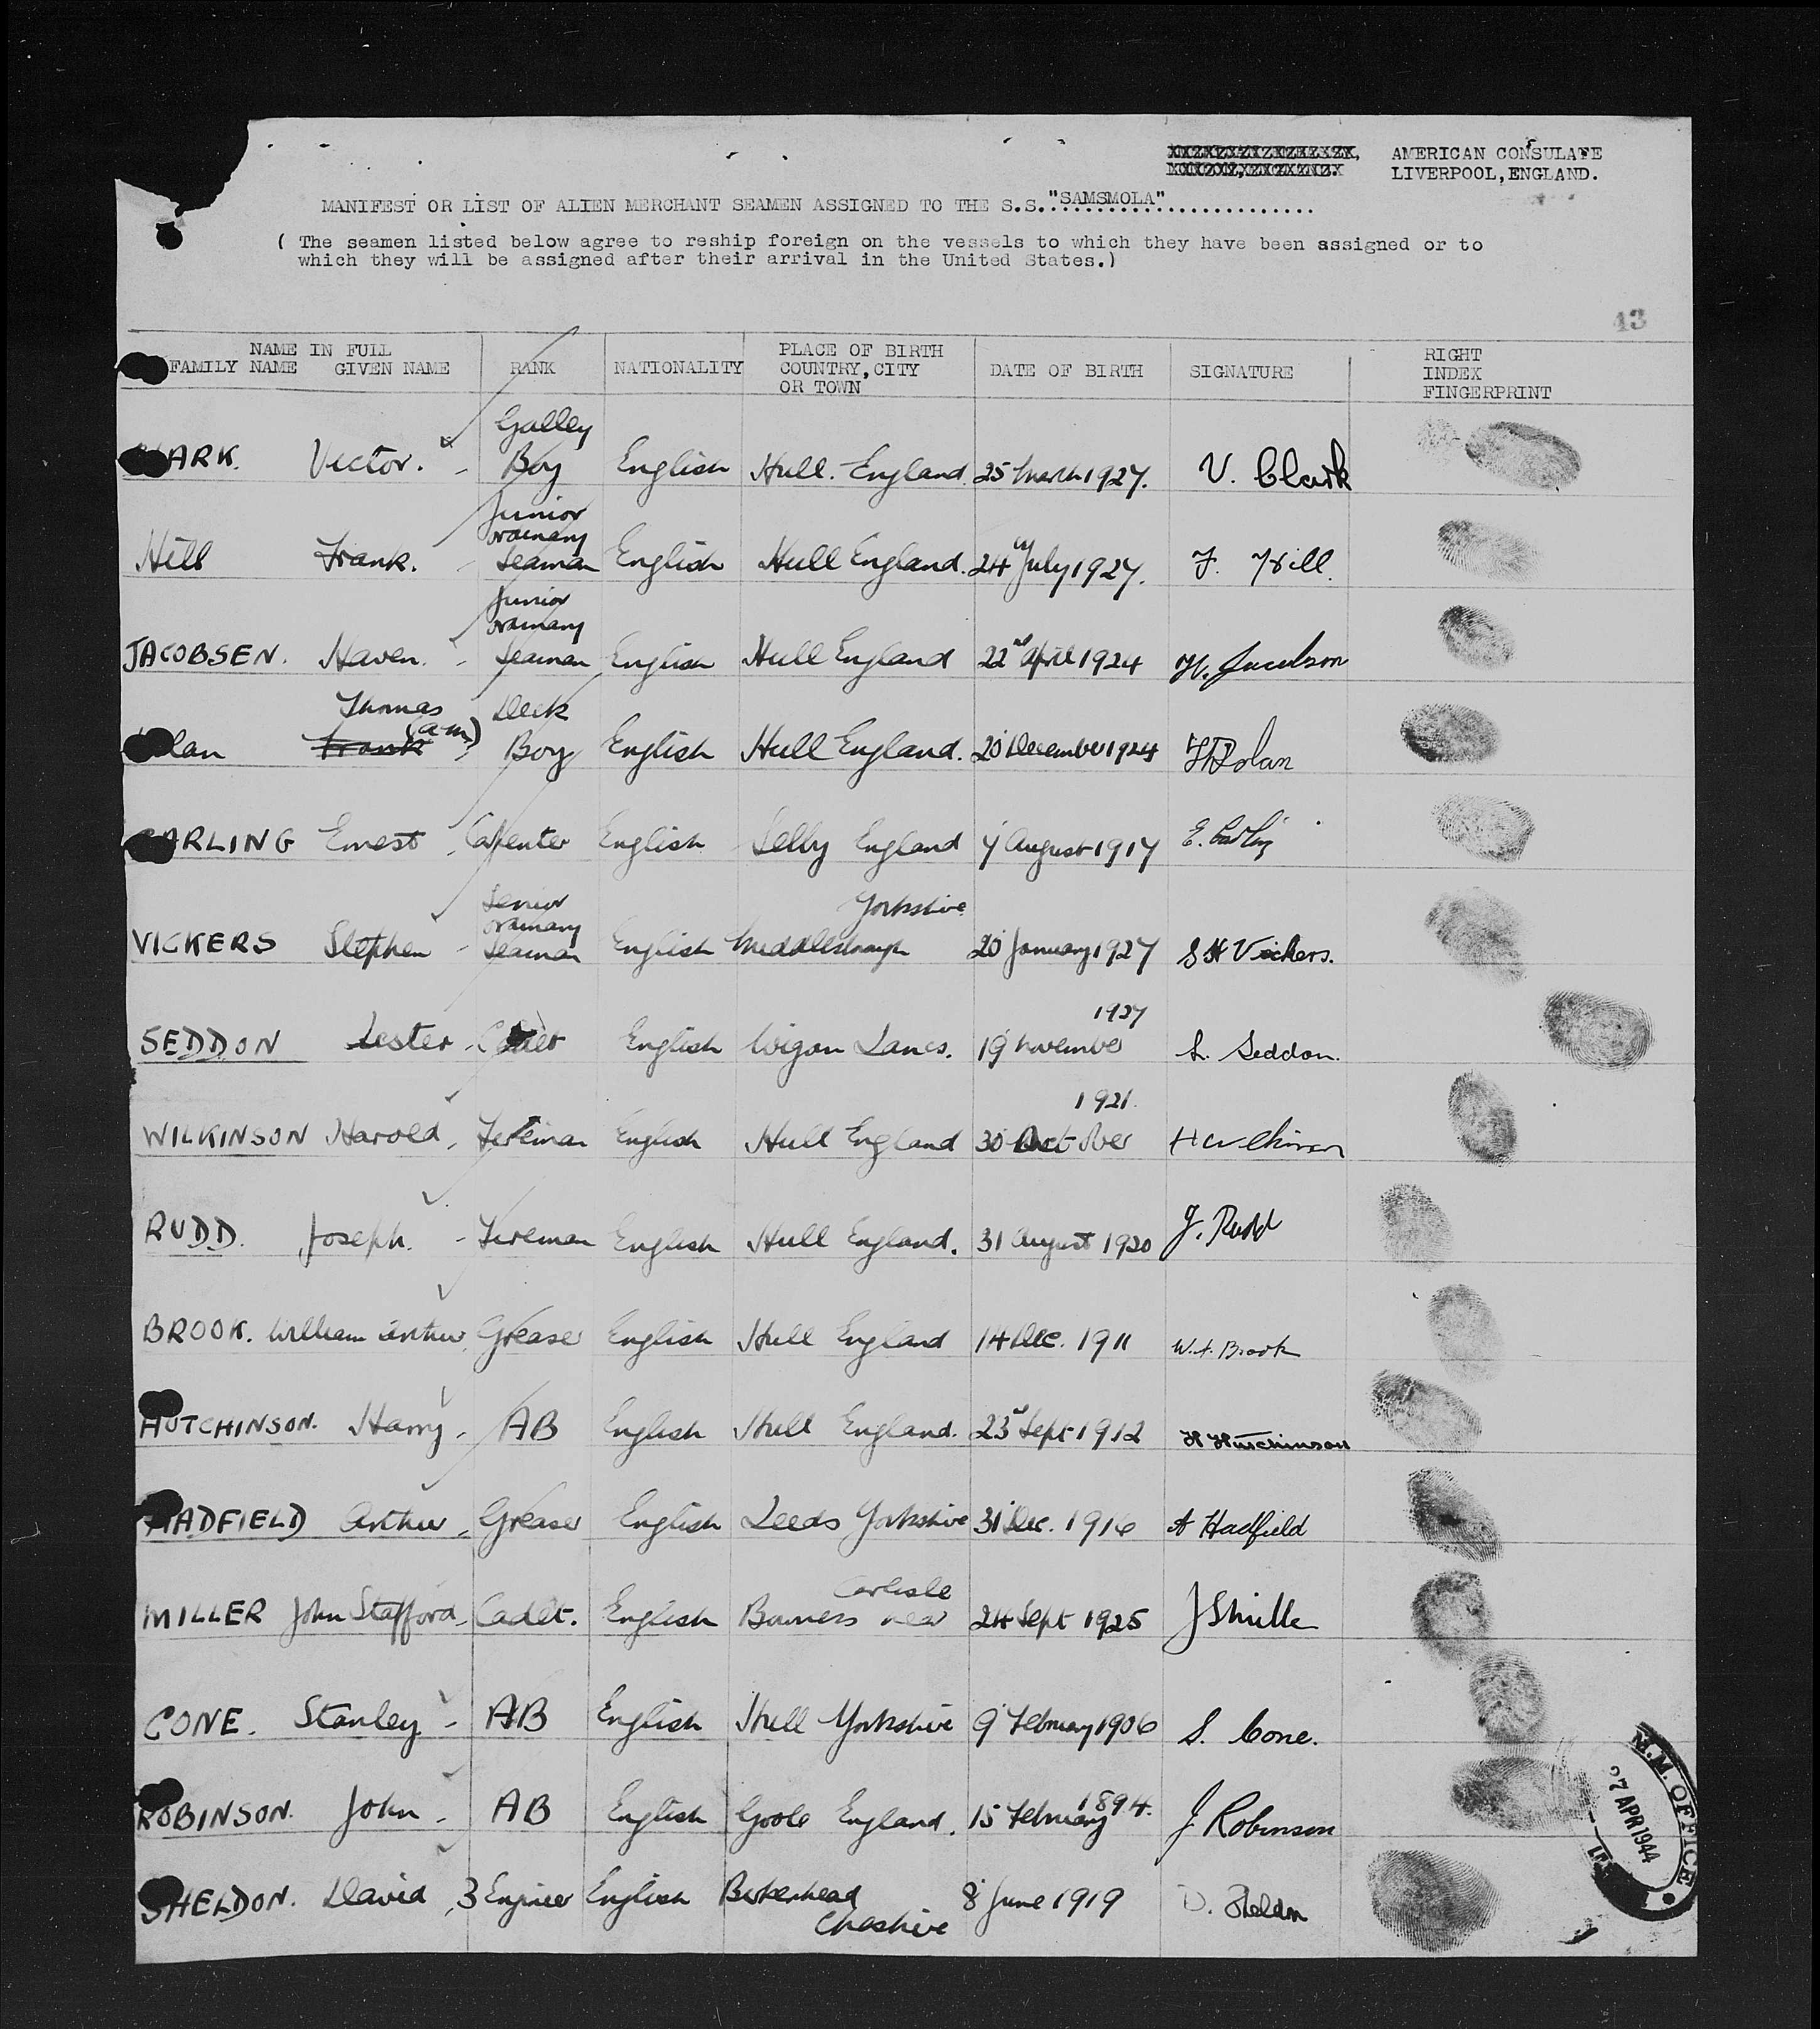 AMERICAN CONSULATE
LIVERPOOL, ENGLAND.
MANIFEST OR LIST OF ALIEN MERCHANT SEAMEN ASSIGNED TO THE S.S."SAMSMOLA"
( The seamen listed below agree to reship foreign on the vessels to which they have been assigned or to
which they will be assigned after their arrival in the United States.)
43
NAME IN FULL
FAMILY NAME GIVEN NAME RANK NATIONALITY PLACE OF BIRTH COUNTRY, CITY OR TOWN DATE OF BIRTH SIGNATURE RIGHT INDEX FINGERPRINT
ARK. Victor. Galley Boy English Hull. England. 25 March 1927. V. Clark
Hill Frank. Junior ordinary Seaman English Hull England. 24 July 1927. F. Hill.
JACOBSEN. Haven. Junior ordinary Seaman English Hull England 22nd April 1924 H. Jacobson
lan Thomas Frank (am) Deck Boy English Hull England. 20 December 1924 T Dolan
ARLING Ernest Carpenter English Selby England 7 August 1917 E. Carling
VICKERS Stephen Senior ordinary Seaman English Middlesbrough Yorkshire 20 January 1927 S H Vickers.
SEDDON Lester Cadet English Wigan Lancs. 19 November 1927 L. Seddon.
WILKINSON Harold, Fireman English Hull England 30 October 1921. H Wilkinson
RUDD. Joseph. Fireman English Hull England. 31 August 1920 J. Rudd
BROOK. William Arthur, Greaser English Hull England 14 Dec. 1911 W.A. Brook
HUTCHINSON. Harry, AB English Hull England. 23rd Sept 1912 H Hutchinson
HADFIELD Arthur, Greaser English Leeds Yorkshire 31 Dec. 1916 A Hadfield
MILLER John Stafford, Cadet. English Bowness near Carlisle 24 Sept 1925 J S Miller
CONE. Stanley AB English Hull Yorkshire 9 February 1906 S. Cone.
ROBINSON. John AB English Goole England. 15 February 1894. J Robinson
SHELDON. David, 3 Engineer English Birkenhead Cheshire 8 June 1919 D. Sheldon
M.M. OFFICE
27 APR 1944